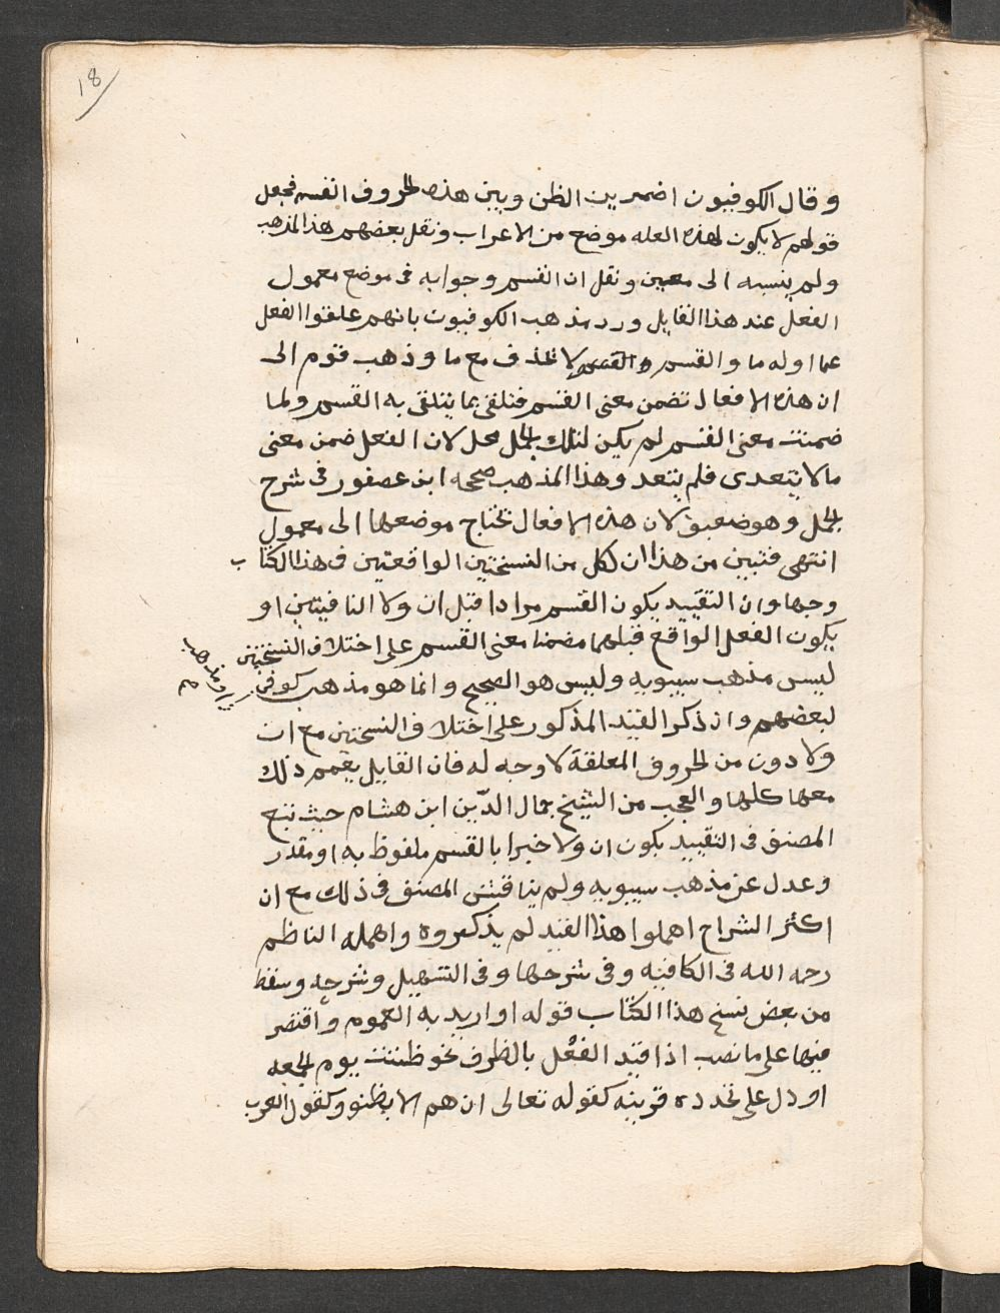 18
وقال الكوفيون اضمر بين الظن وبين هذه الحروف القسم فجعل
قولهم لا يكون لهذه العله موضع من الاعراب ونقل بعضهم هذا المذهب
ولم ينسبه الى معين ونقل ان القسم وجوابه فى موضع معمول
الفعل عند هذا القايل ورد مذهب الكوفيون بانهم علقوا الفعل
عما اوله ما والقسم لا تحذف مع ما وذهب قوم الى
ان هذه الافعال تضمن معنى القسم فتلقى بما يتلقى به القسم ولما
ضمنت معنى القسم لم يكن لتلك الجمل محل لان الفعل ضمن معنى
ما لا يتعدى فلم يتعد وهذا المذهب صححه ابن عصفور فى شرح
الجمل وهو ضعيف لان هذه الافعال تحتاج موضعها الى معمول
انتهى فتبين من هذا ان لكل من النسختين الواقعتين فى هذا الكتاب
وجها وان التقييد بكون القسم مرادا قبل ان ولا النافيتين او
بكون الفعل الواقع قبلهما مضمنا معنى القسم على اختلاف النسختين
ليس مذهب سيبويه وليس هو الصحيح وانما هو مذهب كوفى
او مذهب
لبعضهم وان ذكر القيد المذكور على اختلاف النسختين مع ان
ولا دون من الحروف المعلقة لا وجه له فان القايل يعمم ذلك
معها كلها والعجب من الشيخ جمال الدين ابن هشام حيث تبع
المصنف فى التقييد بكون ان ولا خبرا بالقسم ملفوظ به او مقدر
وعدل عن مذهب سيبويه ولم يناقش المصنف فى ذلك مع ان
اكثر الشراح اهملوا هذا القيد لم يذكروه واهمله الناظم
رحمه الله فى الكافيه وفى شرحها وفى التسهيل وشرحه وسقط
من بعض نسخ هذا الكتاب قوله او اريد به العموم واقتصر
فيها على ما نصه اذا قيد الفعل بالظرف نحو ظننت يوم الجمعه
او دل على تجدده قرينه كقوله تعالى ان هم الا يظنو وكقول العرب